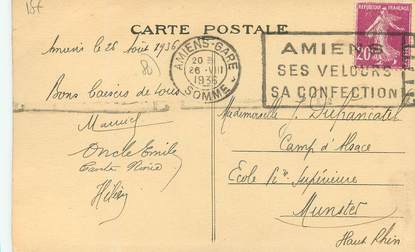 15f
CARTE POSTALE
Amiens le 26 Août 1936
AMIENS-GARE
20 H
26 - VIII
1936
SOMME
AMIENS
SES VELOURS
SA CONFECTION
REPUBLIQUE FRANCAISE
20
Bons Baisers de tous
Oncle Emile
Mademoiselle
Camp d'Alsace
Ecole Pre Supérieure
Munster
Haut Rhin